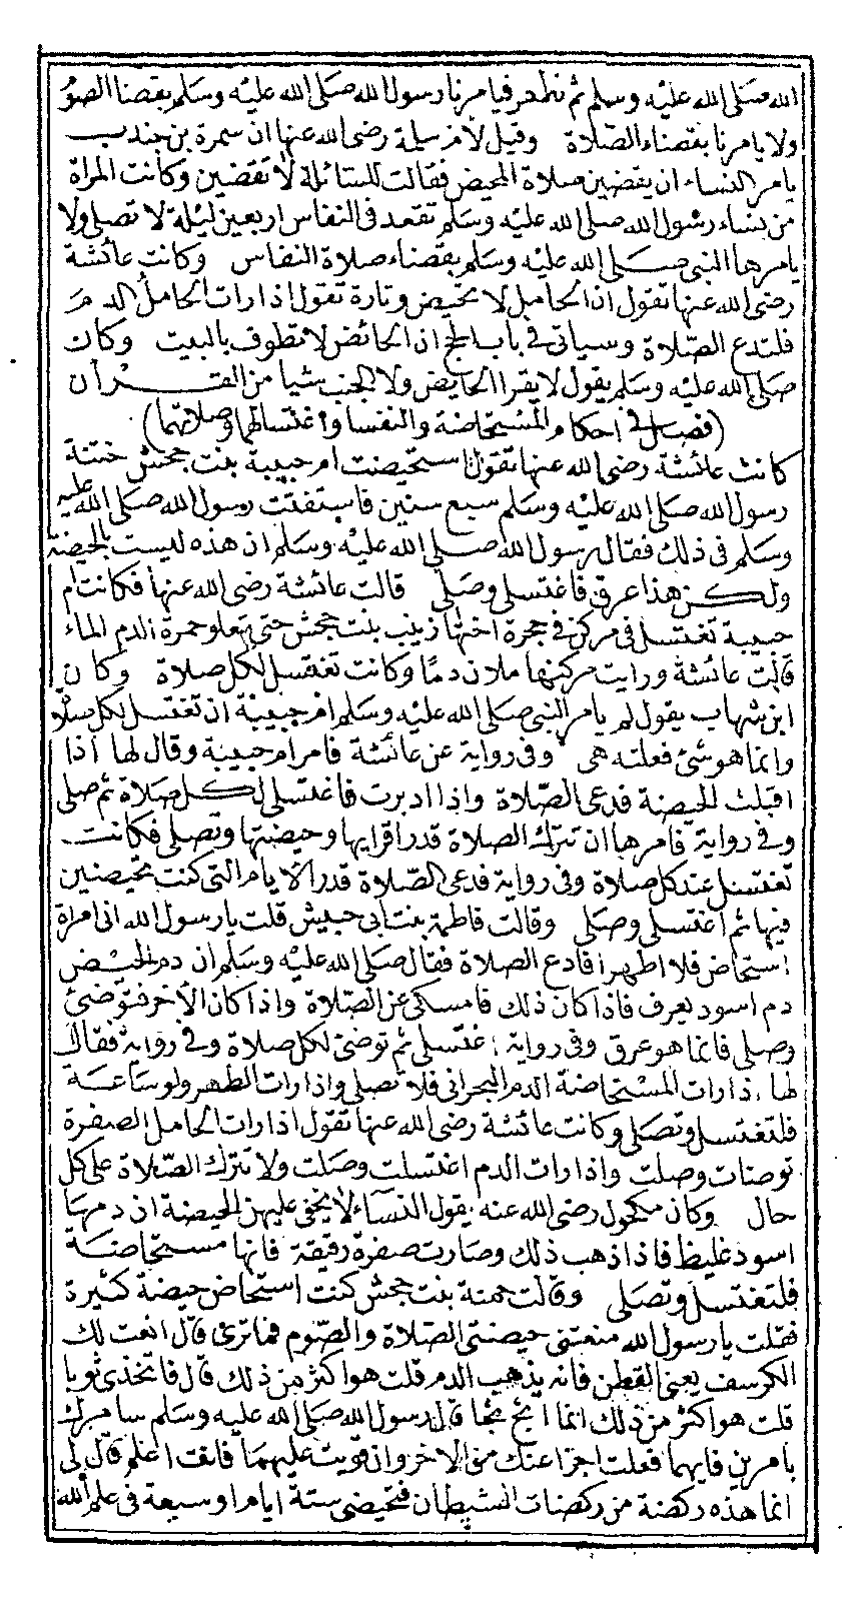 الله صلى الله عليه وسلم ثم نطهر فيامرنا رسول الله صلى الله عليه وسلم بقضا الصو
ولا يامرنا بقضاء الصلاة وقيل لأم سلمة رضى الله عنها ان سمرة بن جندب
يامر النساء ان يقضين صلاة المحيض فقالت للسائلة لا تقضين وكانت المراة
من نساء رسول الله صلى الله عليه وسلم تقعد فى النفاس اربعين ليلة لا تصلى ولا
يامرها النبى صلى الله عليه وسلم بقضاء صلاة النفاس وكانت عائشة
رضى الله عنها تقول ان الحامل لا تحيض وتارة تقول اذا رات الحامل الدم
فلتدع الصلاة وسياتى في باب الحج ان الحائض لا تطوف بالبيت وكان
صلى الله عليه وسلم يقول لا يقرا الحايض ولا الجنب شيا من القرآن
(فصل في احكام المستحاضة والنفسا واغتسالهما وصلاتهما)
كانت عائشة رضى الله عنها تقول استحيضت ام حبيبة بنت جحش ختنة
رسول الله صلى الله عليه وسلم سبع سنين فاستفتت رسول الله صلى الله عليه
وسلم فى ذلك فقال رسول الله صلى الله عليه وسلم ان هذه ليست بالحيضة
ولكن هذا عرق فاغتسلى وصلى قالت عائشة رضى الله عنها فكانت ام
حبيبة تغتسل فى مركن في حجرة اختها زينب بنت جحش حتى تعلو حمرة الدم الماء
قالت عائشة ورايت مركنها ملان دمًا وكانت تغتسل لكل صلاة وكان
ابن شهاب يقول لم يامر النبى صلى الله عليه وسلم ام حبيبة ان تغتسل لكل صلاة
وانما هو شئ فعلته هى وفى رواية عن عائشة فامر ام حبيبة وقال لها اذا
اقبلت الحيضة فدعى الصلاة واذا ادبرت فاغتسلى لكل صلاة ثم صلى
وفي رواية فامرها ان تترك الصلاة قدر اقرايها وحيضتها وتصلى فكانت
تغتسل عند كل صلاة وفى رواية فدعى الصلاة قدر الايام التى كنت تحيضين
فيها ثم اغتسلى وصلى وقالت فاطمة بنت ابى حبيش قلت يا رسول الله انى امراة
استحاض فلا اطهر افادع الصلاة فقال صلى الله عليه وسلم ان دم الحيض
دم اسود يعرف فاذا كان ذلك فامسكى عن الصلاة واذا كان الآخر فتوضئ
وصلى فانما هو عرق وفى رواية اغتسلى ثم توضئ لكل صلاة وفي رواية فقال
لها اذا رات المستحاضة الدم البحرانى فلا تصلى واذا رات الطهر ولو ساعة
فلتغتسل وتصلى وكانت عائشة رضى الله عنها تقول اذا رات الحامل الصفرة
توضات وصلت واذا رات الدم اغتسلت وصلت ولا تترك الصلاة على كل
حال وكان مكحول رضى الله عنه يقول النساء لا يخفى عليهن الحيضة ان دمها
اسود غليظ فاذا ذهب ذلك وصارت صفرة رقيقة فانها مستحاضة
فلتغتسل وتصلى وقالت حمنة بنت جحش كنت استحاض حيضة كثيرة
فقلت يا رسول الله منعتنى حيضتى الصلاة والصوم فما ترى قال انعت لك
الكرسف يعنى القطن فانه يذهب الدم قلت هو اكثر من ذلك قال فاتخذى ثوبا
قلت هو اكثر من ذلك انما اثج ثجا قال رسول الله صلى الله عليه وسلم سامرك
بامرين فايهما فعلت اجزا عنك من الاخر وان قويت عليهما فانت اعلم قال لى
انما هذه ركضة من ركضات الشيطان فتحيضى ستة ايام او سبعة فى علم الله